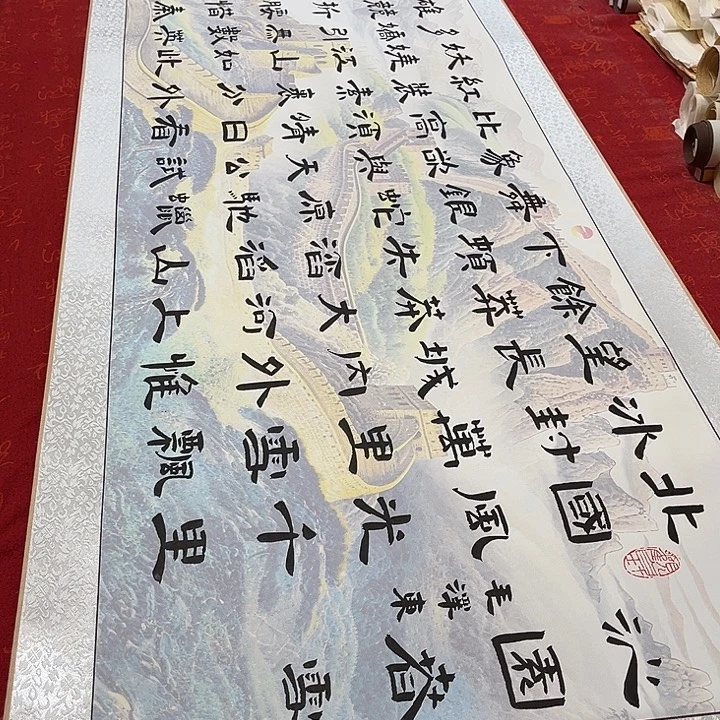 沁園春雪
毛澤東
北國風光千里
冰封萬里雪飄
望長城内外惟
餘莽莽大河上
下頓失滔滔山
舞銀蛇原馳蠟
象欲與天公試
比高須晴日看
紅裝素裹分外
妖嬈江山如此
多嬌引無數英
雄競折腰惜秦